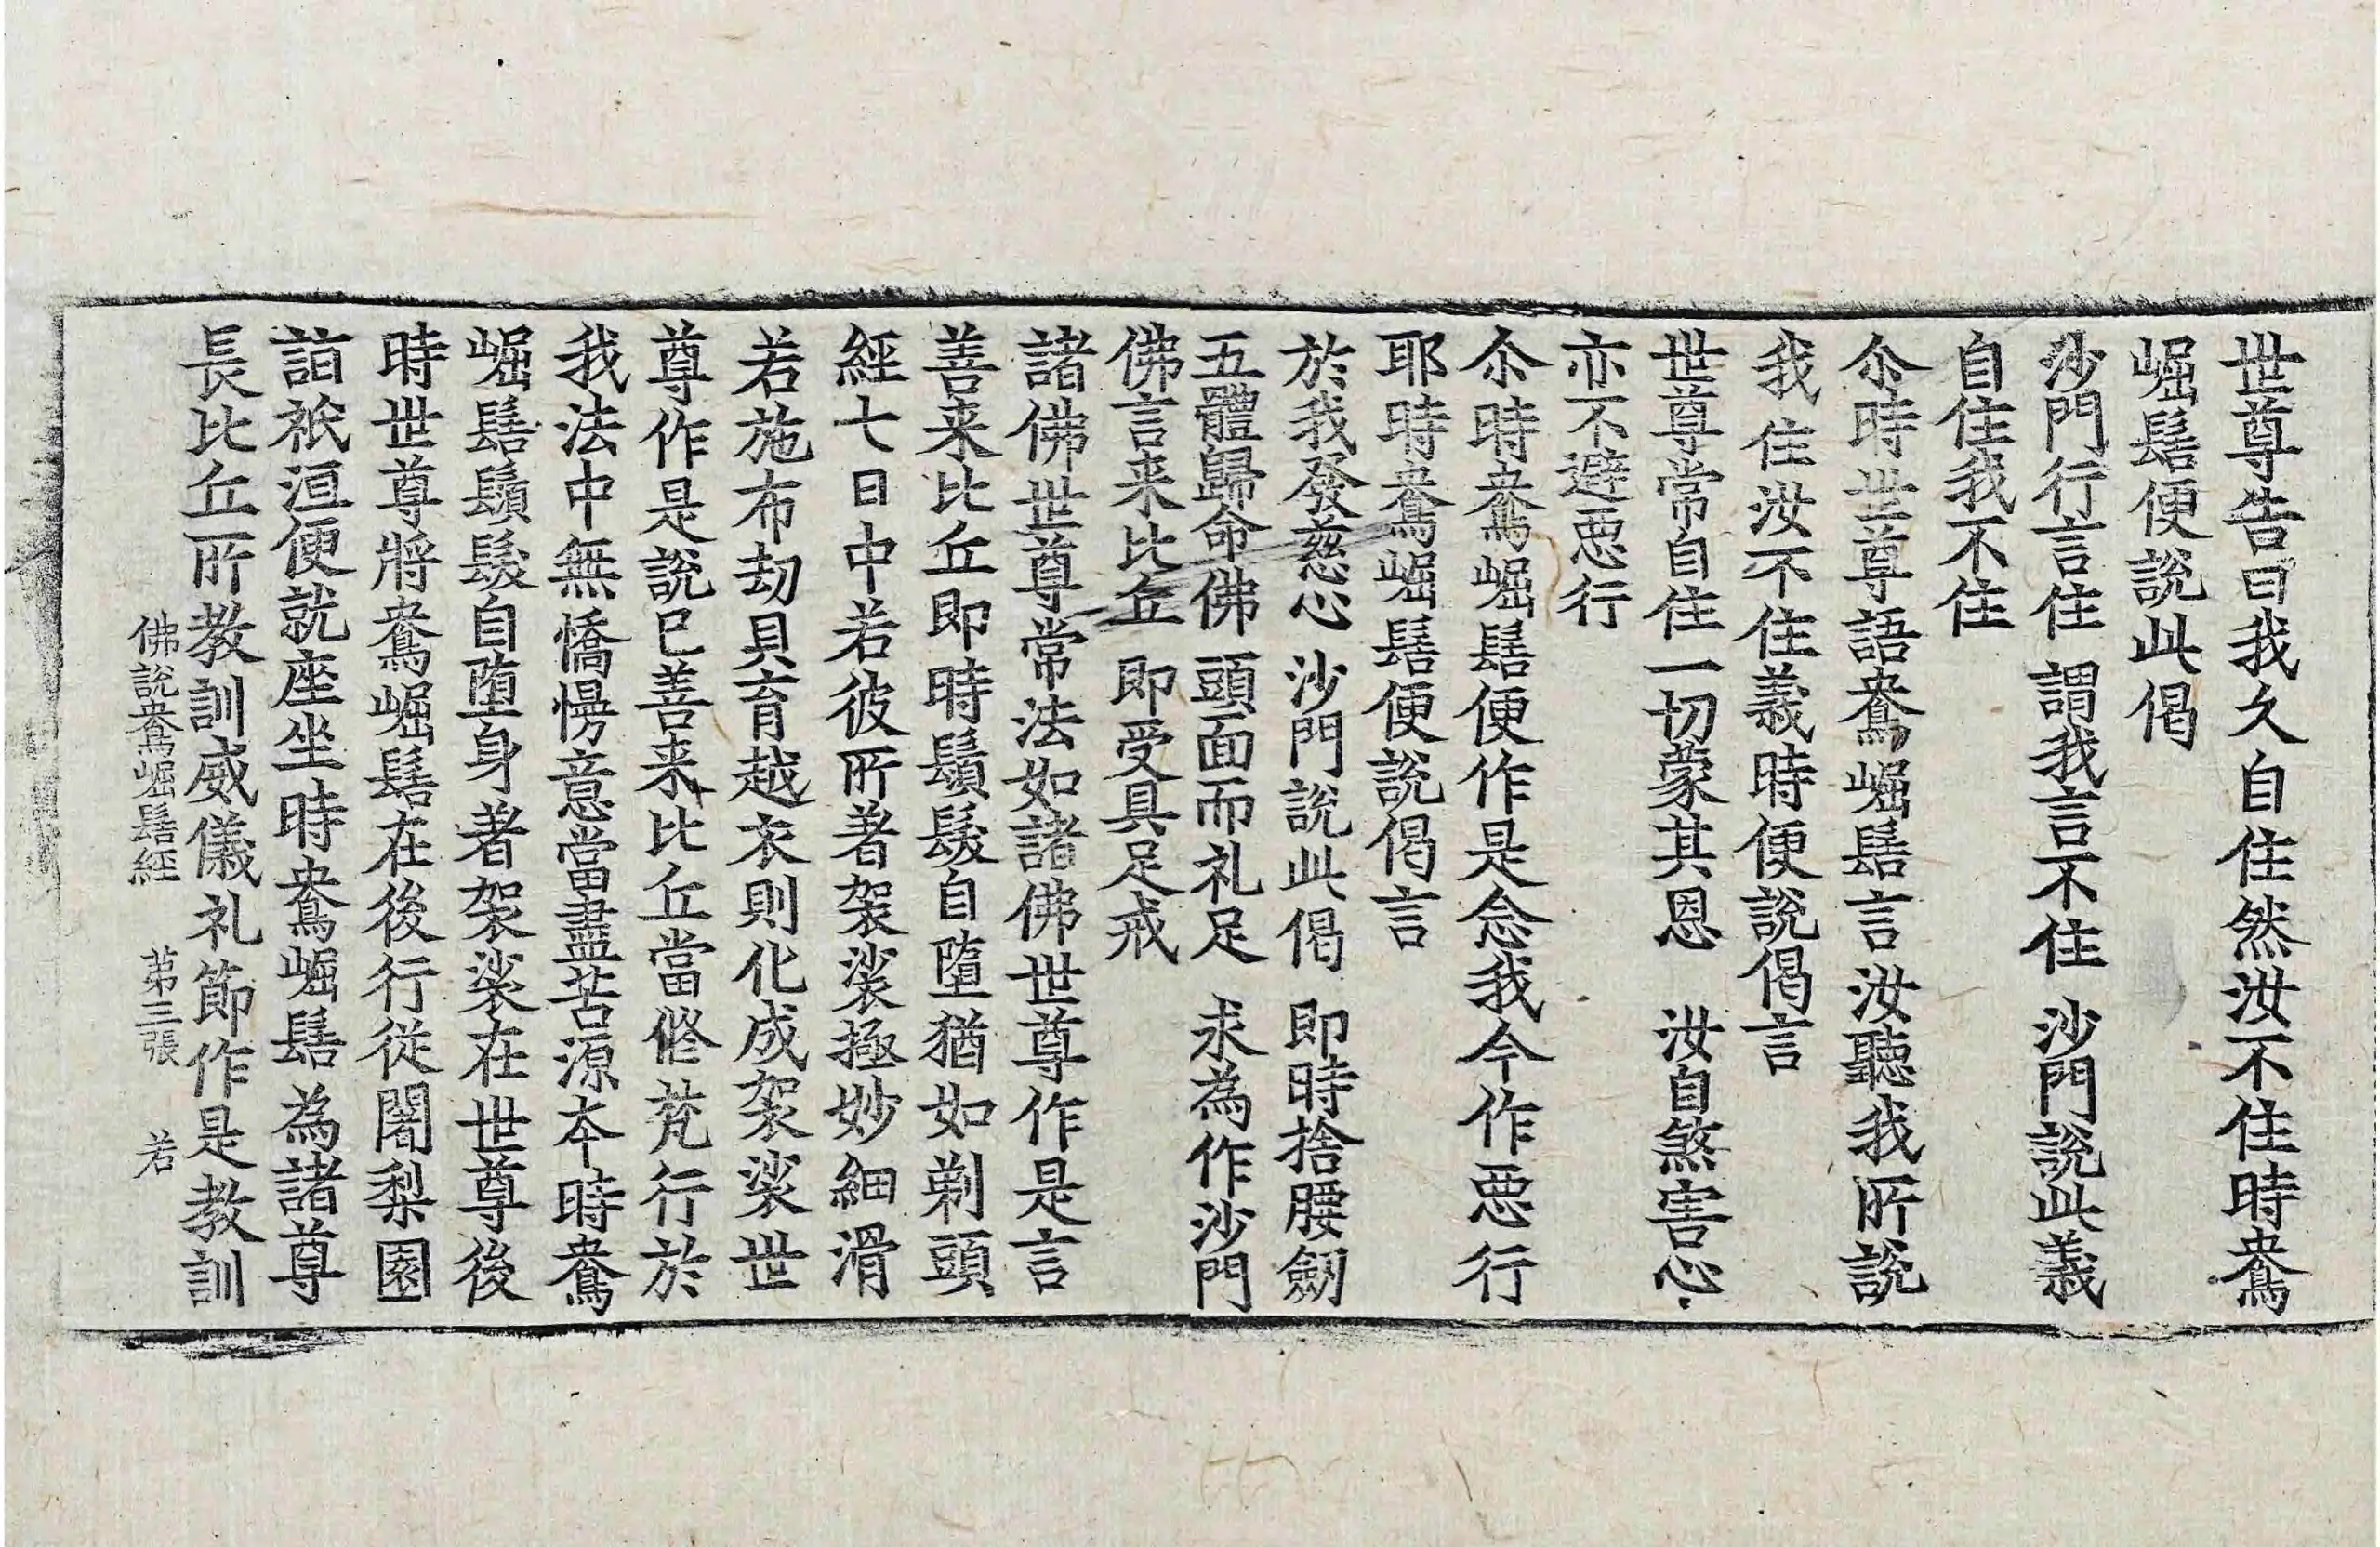 世尊告曰我久自住然汝不住時鴦
崛髻便說此偈
沙門行言住 謂我言不住 沙門說此義
自住我不住
尒時世尊語鴦崛髻言汝聽我所說
我住汝不住義時便說偈言
世尊常自住一切蒙其恩 汝自煞害心
亦不避惡行
尒時鴦崛髻便作是念我今作惡行
耶時鴦崛髻便說偈言
於我發慈心 沙門說此偈 即時捨腰劔
五體歸命佛 頭面而礼足 求為作沙門
佛言来比丘 即受具足戒
諸佛世尊常法如諸佛世尊作是言
善来比丘即時鬚髮自墮猶如剃頭
經七日中若彼所著袈裟極妙細滑
若施布劫貝育越衣則化成袈裟世
尊作是說已善来比丘當修梵行於
我法中無憍慢意當盡苦源本時鴦
崛髻鬚髮自墮身著袈裟在世尊後
時世尊將鴦崛髻在後行從闍梨園
詣祇洹便就座坐時鴦崛髻為諸尊
長比丘所教訓威儀礼節作是教訓
佛說鴦崛髻經 第三張 若